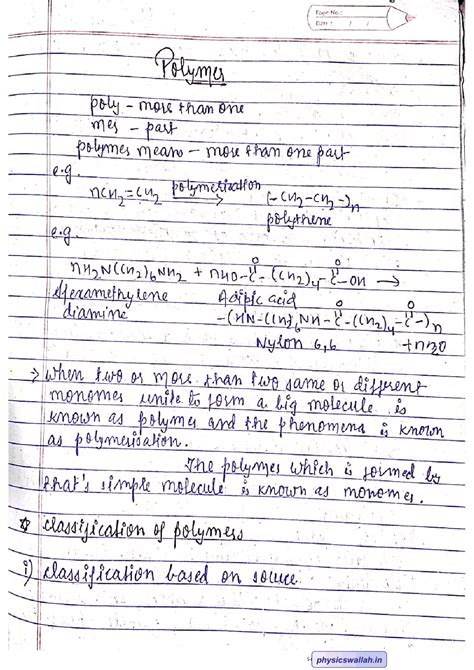 Page No.:
Date: / /
Polymer
poly - more than one
mer - part
polymer means - more than one part
e.g.
nCH2=CH2 polymerization → (-CH2-CH2-)n
polythene
e.g.
O O
nH2N(CH2)6NH2 + nHO-C-(CH2)4-C-OH →
Hexamethylene Adipic acid O O
diamine -(HN-(CH2)6NH-C-(CH2)4-C-)n
Nylon 6,6 +nH2O
⇒ When two or more than two same or different
monomer unite to form a big molecule is
known as polymer and the phenomena is known
as polymerisation.
The polymer which is formed by
that's simple molecule is known as monomer.
☆ classification of polymers
i) classification based on source
physicswallah.in